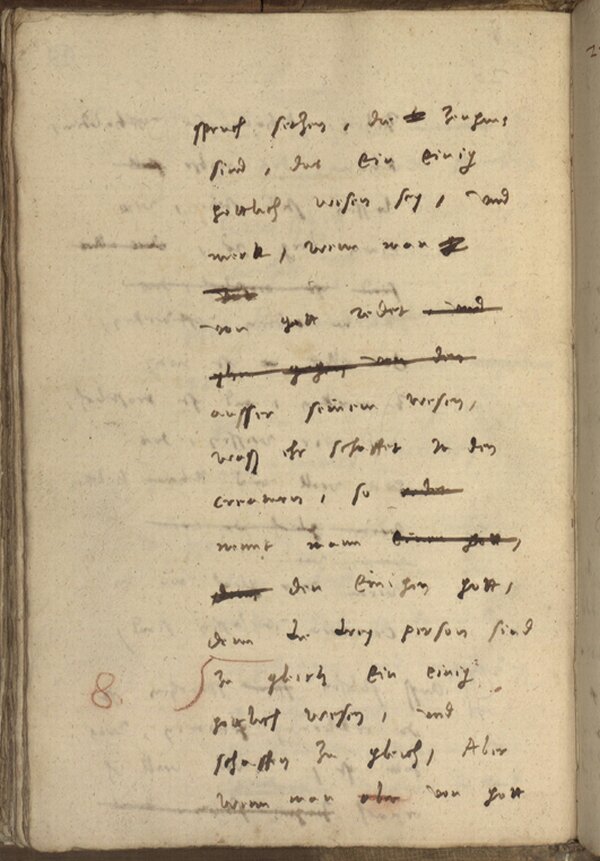 spruch setzen, die zeugnis
sind, das ein einig
gottlich wesen sey, und
merk, wenn man
von gott redet und
ausser seinem wesen,
was ehr schaffet in den
creaturn, so
nennt mann einen gott,
den einigen gott,
denn die drey person sind
zu gleich ein einig
8.
gottlich wesen, und
schaffen zu gleich, Aber
wenn man aber von gott